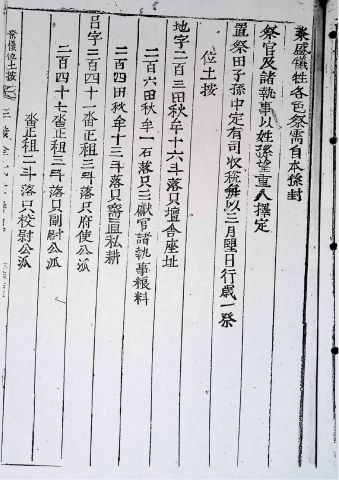 粢盛犧牲各色祭需自本孫封
祭官及諸執事以姓孫望重人擇定
置祭田子孫中定有司收稅備以三月望日行歲一祭
位土按
地字二百三田秋牟十六斗落只壇舍座址
二百六田秋牟一石落只三獻官諸執事粮料
二百四田秋牟十三斗落只齋直私耕
呂字二百四十一畓正租三斗落只府使公派
二百四十七畓正租三斗落只副尉公派
畓正租二斗落只校尉公派
祭儀位土按